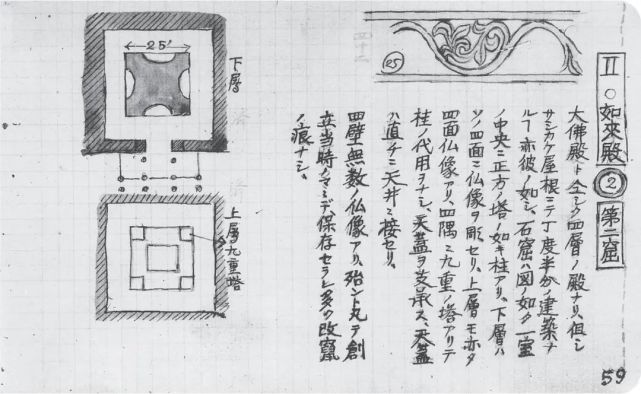 II ○ 如來殿 ② 第二窟
大佛殿ト全シク四層ノ殿ナリ、但シ
サシカケ屋根ニテ丁度半分ノ建築ナ
ルフ亦彼ノ如シ、石窟ハ図ノ如ク一室
ノ中央ニ正方ノ塔ノ如キ柱アリ、下層ハ
ソノ四面ニ仏像ヲ彫セリ、上層モ亦タ
四面仏像アリ、四隅ニ九重ノ塔アリテ
柱ノ代用ヲナシ、天蓋ヲ支承ス、天蓋
ハ直チニ天井ニ接セリ、
四壁無数ノ仏像アリ、殆ント丸テ創
立当時ノママデ保存セラレ多ク改竄
ノ痕ナシ、
25
下層
25'
上層九重塔
59